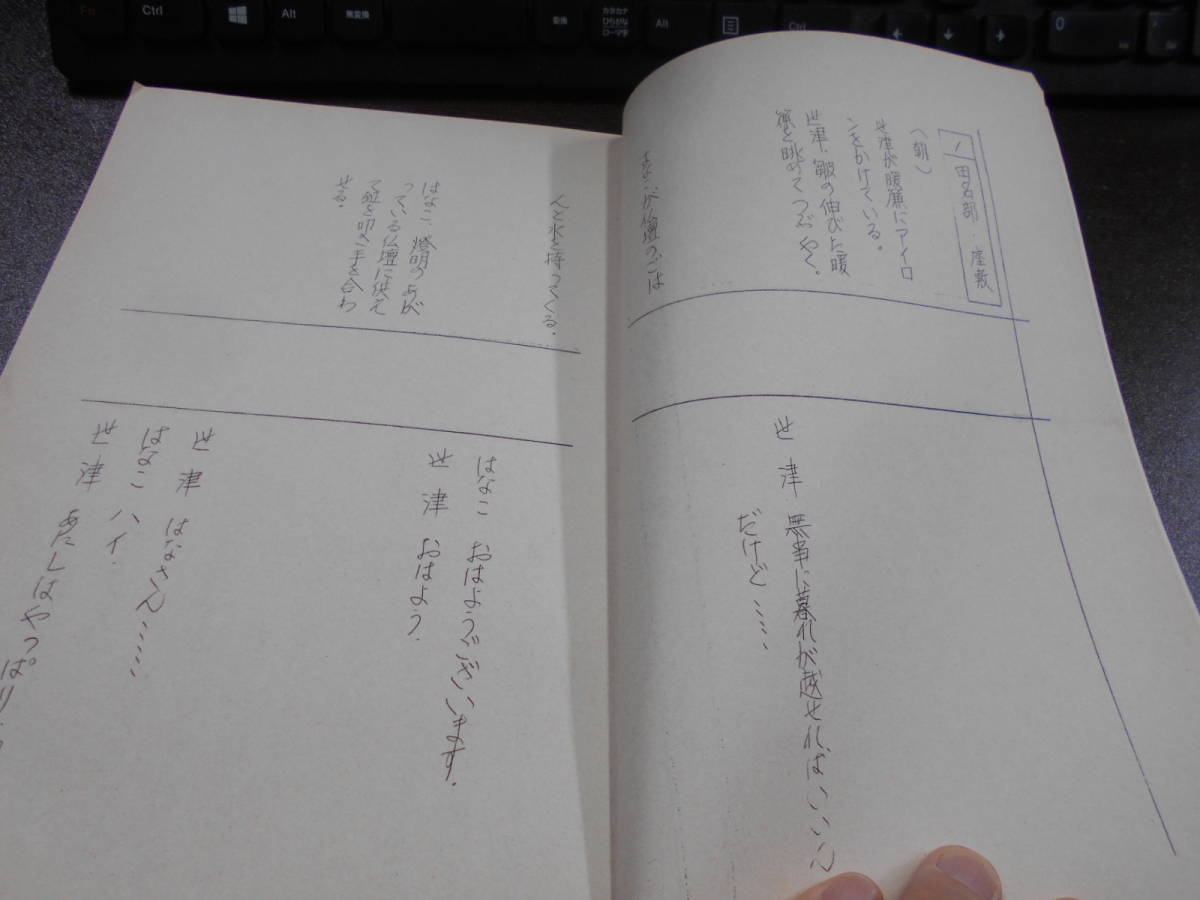 Fn
Ctrl
Alt
無変換
変換
カタカナ
ひらがな
ローマ字
Alt
Ctrl
0
1 田名部・座敷
(朝)
世津が暖簾にアイロ
ンをかけている。
世津、皺の伸びた暖
簾を眺めてつぶやく。
世津 無事に暮れが越せればいいん
だけど……
はなこが仏壇のごは
んと水を持ってくる。
はなこ おはようございます。
世津 おはよう。
はなこ、燈明のあが
っている仏壇に供え
て鉦を叩き手を合わ
せる。
世津 はなさん……
はなこ ハイ。
世津 あたしはやっぱり